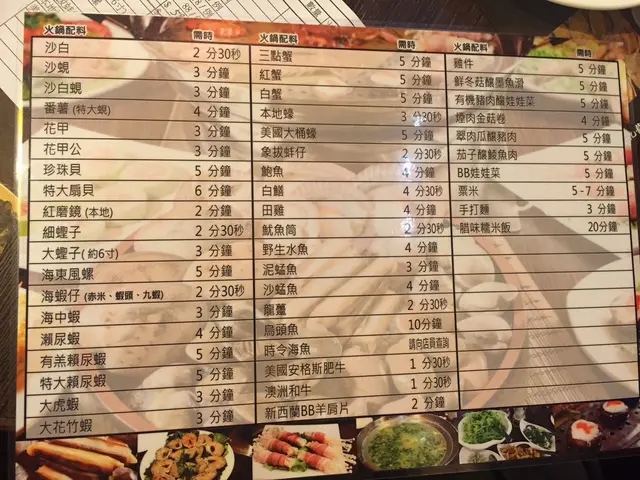 火鍋配料 需時
沙白 2 分30秒
沙蜆 3 分鐘
沙白蜆 3 分鐘
番薯 (特大蜆) 4 分鐘
花甲 3 分鐘
花甲公 3 分鐘
珍珠貝 5 分鐘
特大扇貝 6 分鐘
紅磨鏡 (本地) 2 分鐘
細蟶子 2 分30秒
大蟶子 (約6寸) 3 分鐘
海東風螺 5 分鐘
海蝦仔 (赤米、蝦頭、九蝦) 2 分30秒
海中蝦 3 分鐘
瀨尿蝦 4 分鐘
有羔賴尿蝦 5 分鐘
特大賴尿蝦 5 分鐘
大虎蝦 3 分鐘
大花竹蝦 3 分鐘
火鍋配料 需時
三點蟹 5 分鐘
紅蟹 5 分鐘
白蟹 5 分鐘
本地蠔 3 分30秒
美國大桶蠔 5 分鐘
象拔蚌仔 2 分30秒
鮑魚 4 分鐘
白鱔 4 分30秒
田雞 4 分鐘
魷魚筒 2 分30秒
野生水魚 4 分鐘
泥鯭魚 3 分鐘
沙鯭魚 4 分鐘
龍躉 2 分30秒
烏頭魚 10分鐘
時令海魚 請向店員查詢
美國安格斯肥牛 1 分30秒
澳洲和牛 1 分30秒
新西蘭BB羊肩片 2 分鐘
火鍋配料 需時
雞件 5 分鐘
鮮冬菇釀墨魚滑 5 分鐘
有機豬肉釀娃娃菜 5 分鐘
煙肉金菇卷 4 分鐘
翠肉瓜釀豬肉 5 分鐘
茄子釀鯪魚肉 5 分鐘
BB娃娃菜 5 分鐘
粟米 5 - 7 分鐘
手打麵 3 分鐘
腊味糯米飯 20分鐘